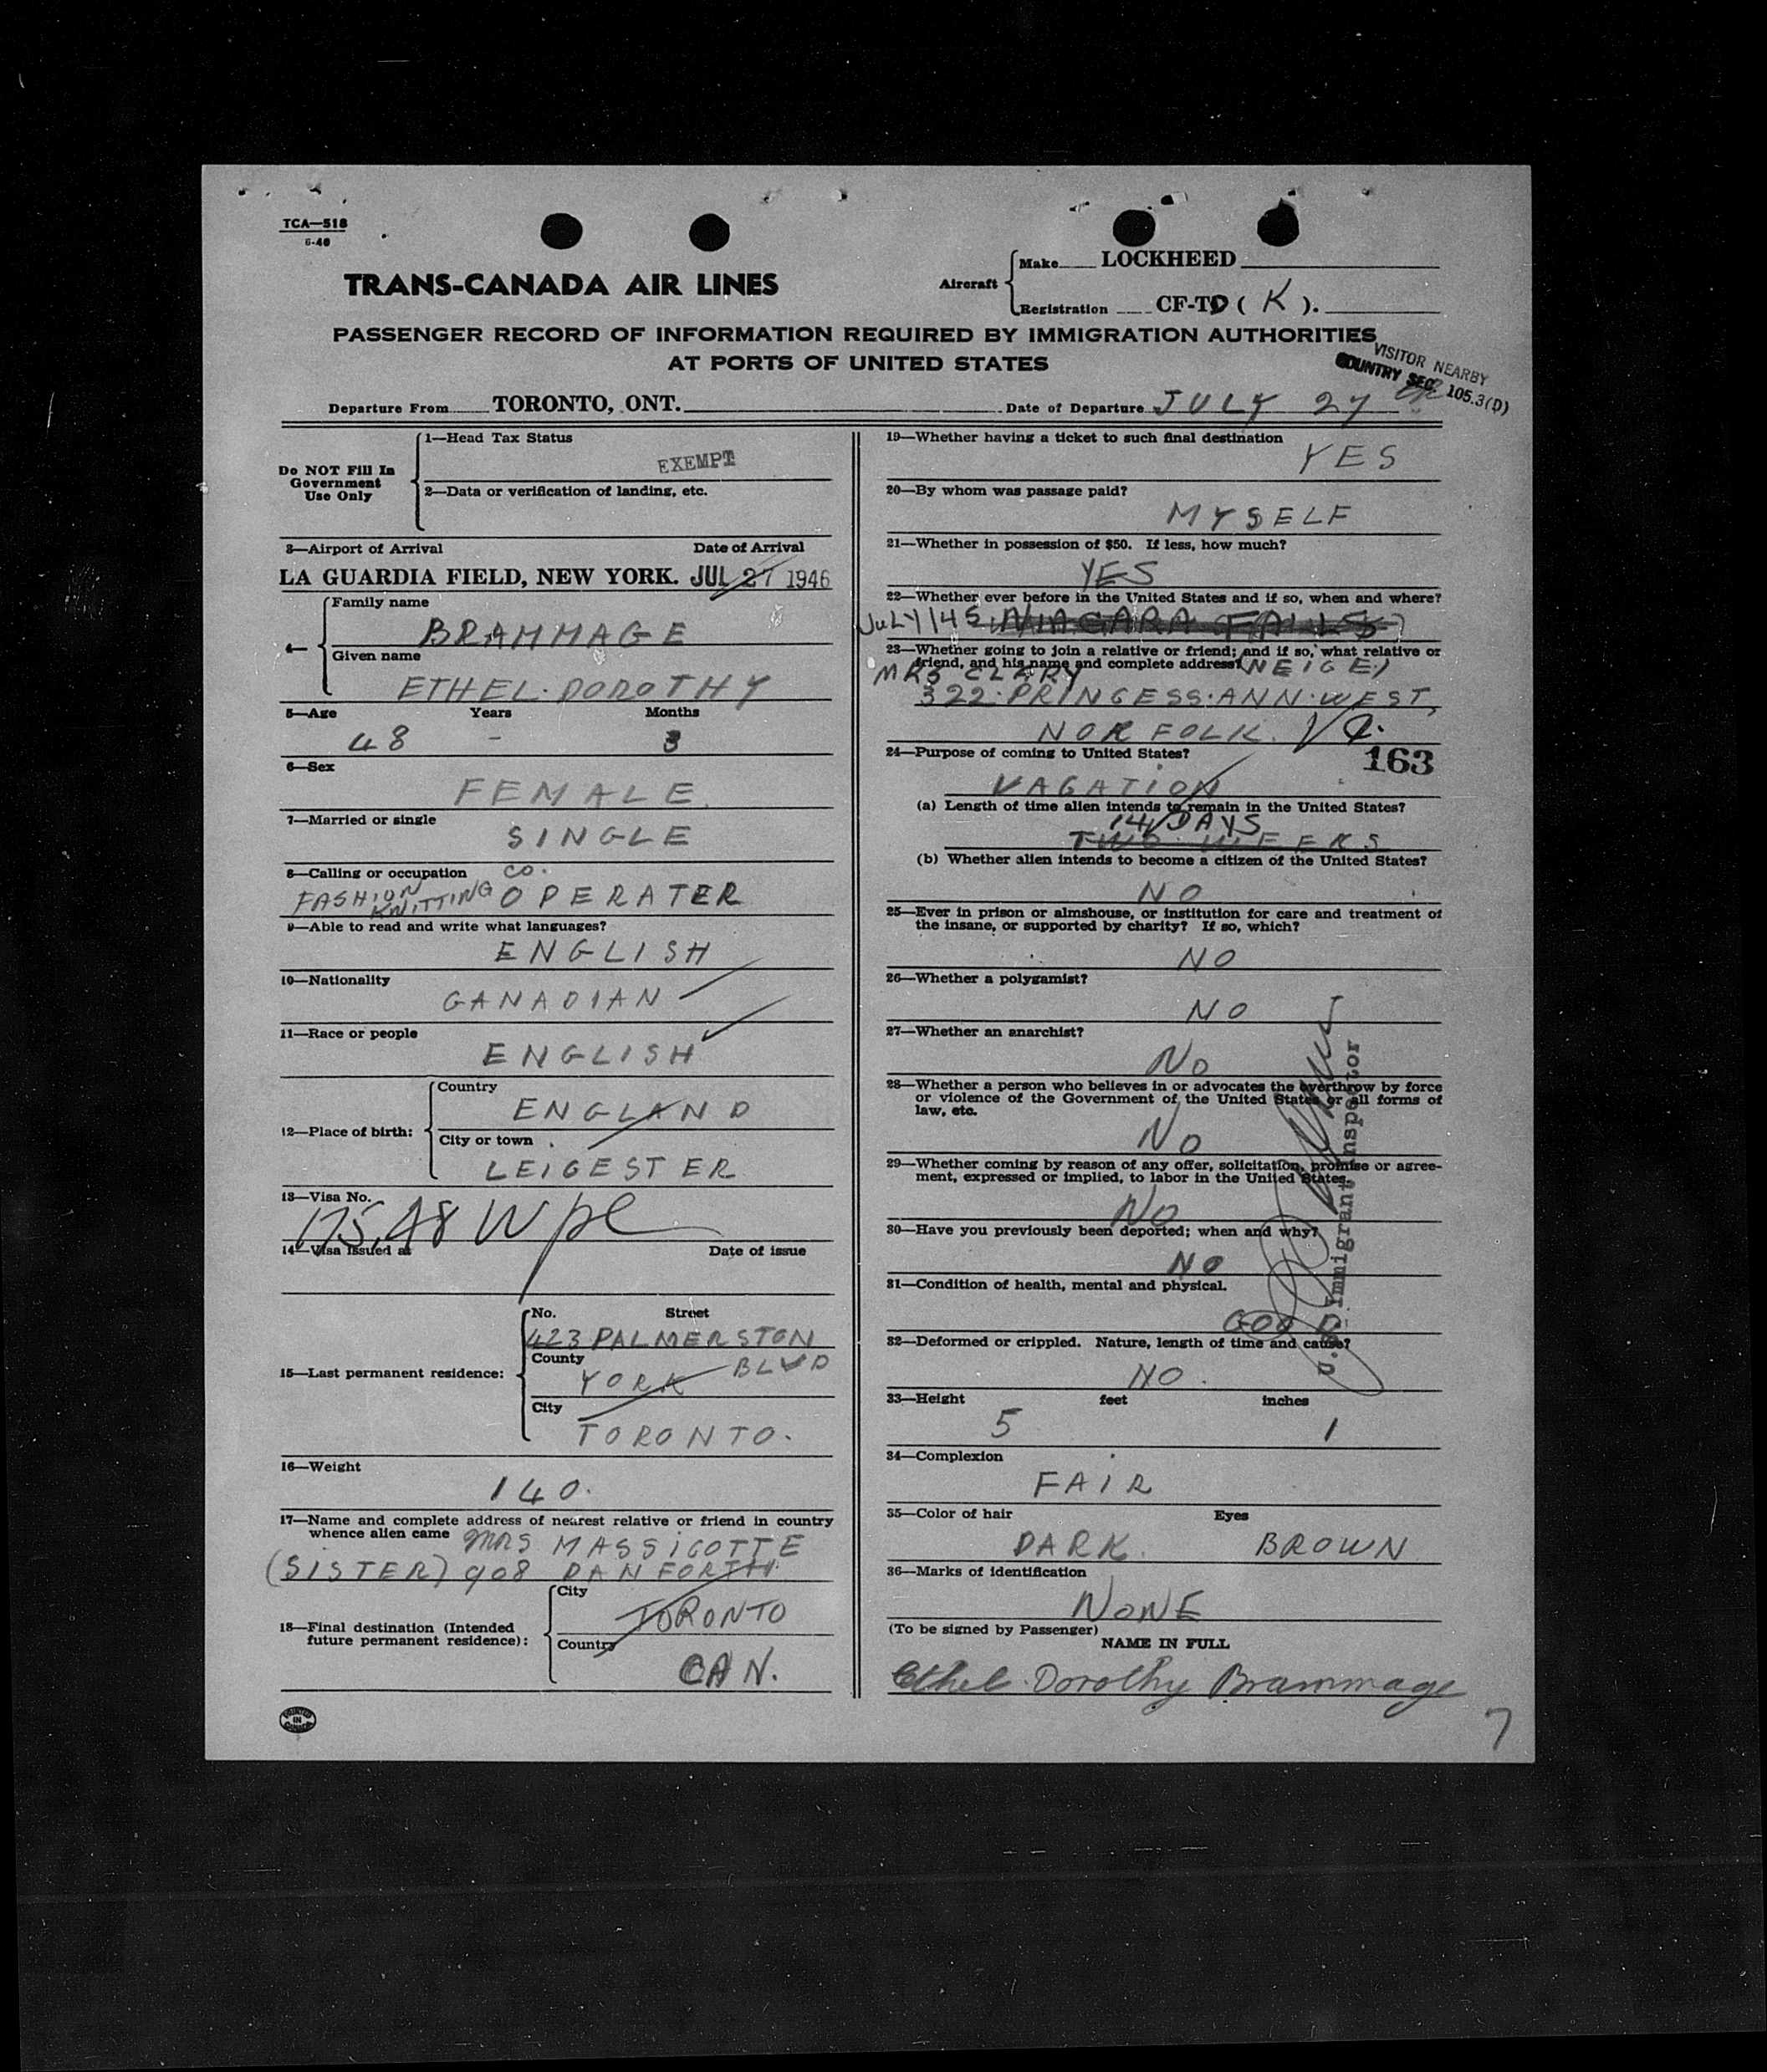 TCA—518
6-40
TRANS-CANADA AIR LINES
Aircraft
Make LOCKHEED
Registration CF-TD ( K ).
PASSENGER RECORD OF INFORMATION REQUIRED BY IMMIGRATION AUTHORITIES
AT PORTS OF UNITED STATES
VISITOR NEARBY
COUNTRY SEC 105.3(D)
Departure From TORONTO, ONT. Date of Departure JULY 27
Do NOT Fill In
Government
Use Only
1—Head Tax Status
EXEMPT
2—Data or verification of landing, etc.
3—Airport of Arrival Date of Arrival
LA GUARDIA FIELD, NEW YORK. JUL 27 1946
4—
Family name
BRAMMAGE
Given name
ETHEL. DOROTHY
5—Age Years Months
48 - 3
6—Sex
FEMALE.
7—Married or single
SINGLE
8—Calling or occupation CO.
FASHION KNITTING OPERATER
9—Able to read and write what languages?
ENGLISH
10—Nationality
CANADIAN
11—Race or people
ENGLISH
12—Place of birth:
Country
ENGLAND
City or town
LEICESTER
13—Visa No.
175.48
14—Visa issued at Date of issue
15—Last permanent residence:
No. Street
423 PALMERSTON
County BLVD
YORK
City
TORONTO.
16—Weight
140.
17—Name and complete address of nearest relative or friend in country
whence alien came MRS MASSICOTTE
(SISTER) 908 DANFORTH
18—Final destination (Intended
future permanent residence):
City
TORONTO
Country
CAN.
PRINTED
IN
CANADA
19—Whether having a ticket to such final destination
YES
20—By whom was passage paid?
MYSELF
21—Whether in possession of $50. If less, how much?
YES
22—Whether ever before in the United States and if so, when and where?
JULY/45 NIAGARA FALLS
23—Whether going to join a relative or friend; and if so, what relative or
friend, and his name and complete address? (NEICE)
MRS CLARY
322. PRINCESS. ANN. WEST,
NORFOLK. VA.
24—Purpose of coming to United States? 163
VACATION
(a) Length of time alien intends to remain in the United States?
14 DAYS
TWO WEEKS
(b) Whether alien intends to become a citizen of the United States?
NO
25—Ever in prison or almshouse, or institution for care and treatment of
the insane, or supported by charity? If so, which?
NO
26—Whether a polygamist?
NO
27—Whether an anarchist?
NO
28—Whether a person who believes in or advocates the overthrow by force
or violence of the Government of the United States or all forms of
law, etc.
NO
29—Whether coming by reason of any offer, solicitation, promise or agree-
ment, expressed or implied, to labor in the United States.
NO
30—Have you previously been deported; when and why?
NO
31—Condition of health, mental and physical.
GOOD
32—Deformed or crippled. Nature, length of time and cause?
NO.
U.S. Immigrant Inspector
33—Height feet inches
5 1
34—Complexion
FAIR
35—Color of hair Eyes
DARK. BROWN
36—Marks of identification
NONE
(To be signed by Passenger)
NAME IN FULL
Ethel Dorothy Brammage
7